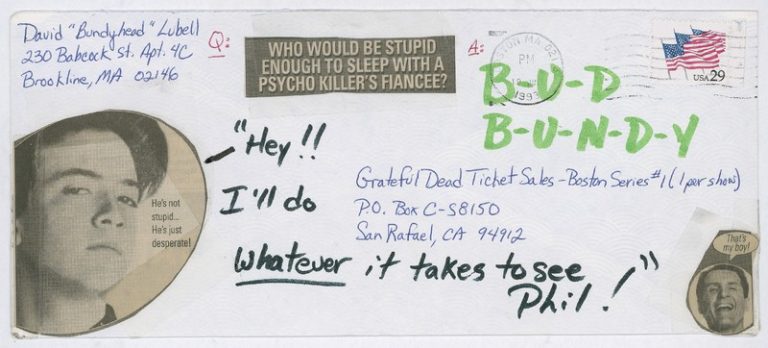 David "Bundyhead" Lubell
230 Babcock St. Apt. 4C
Brookline, MA 02146
Q:
WHO WOULD BE STUPID
ENOUGH TO SLEEP WITH A
PSYCHO KILLER'S FIANCEE?
A:
B-U-D
B-U-N-D-Y
MA 021
PM
1993
USA 29
He's not
stupid...
He's just
desperate!
"Hey!!
I'll do
whatever it takes to see
Phil!"
Grateful Dead Ticket Sales - Boston Series #1 (1 per show)
P.O. Box C-S8150
San Rafael, CA 94912
That's
my boy!